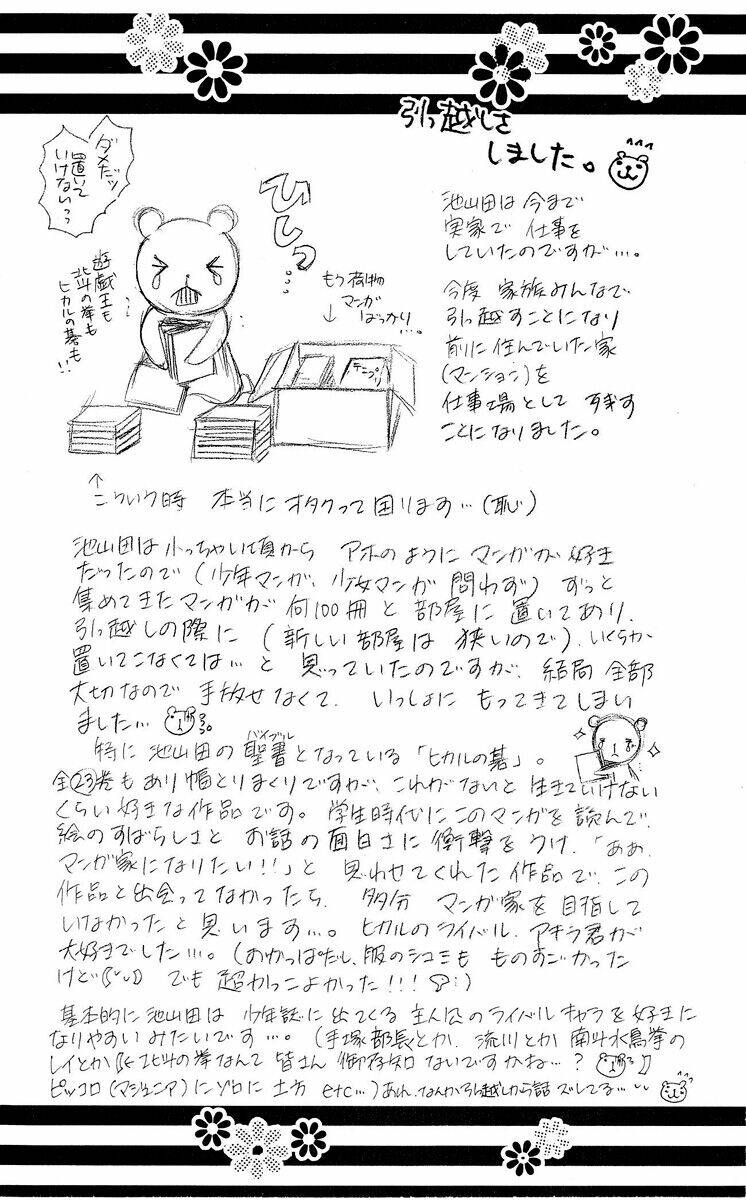 引っ越しを
しました。
池山田は今まで
実家で仕事を
していたのですが…。
今度 家族みんなで
引っ越すことになり
前に住んでいた家
(マンション)を
仕事場として
ことになりました。
ダメだッ
置いて
いけないっっ
遊戯王も
北斗の拳も
ヒカルの碁も!!
ひしっ…
もう荷物
マンガ
ばっかり…。
↓
テニプリ
↑
こういう時 本当にオタクって困ります…(恥)
池山田は小っちゃい頃から アホのように マンガが好き
だったので(少年マンガ、少女マンガ 問わず)ずっと
集めてきたマンガが 何100冊と 部屋に 置いてあり、
引っ越しの際に (新しい部屋は 狭いので)、いくらか
置いてこなくては…と 思っていたのですが、結局 全部
大切なので 手放せなくて、 いっしょに もってきてしまい
ました…
特に 池山田の聖書となっている「ヒカルの碁」。
バイブル
全23巻もあり幅とりまくりですが、これがないと 生きていけない
くらい好きな作品です。学生時代にこのマンガを読んで、
絵のすばらしさと お話の面白さに衝撃をうけ、「ああ、
マンガ家になりたい!!」と 思わせてくれた作品で、この
作品と出会ってなかったら、 多分 マンガ家を目指して
いなかったと思います…。ヒカルのライバル、アキラ君が
大好きでした…。(おかっぱだし、服のシュミも ものすごかった
けど でも超かっこよかった!!!)
基本的に池山田は 少年誌に出てくる 主人公のライバルキャラを好きに
なりやすいみたいです…。(手塚部長とか、流川とか 南斗水鳥拳の
レイとか 北斗の拳なんて 皆さん 御存知ないですかね…?
ピッコロ(マジュニア)にゾロに土方 etc…)あれ、なんか引っ越しから話 ズレてる…